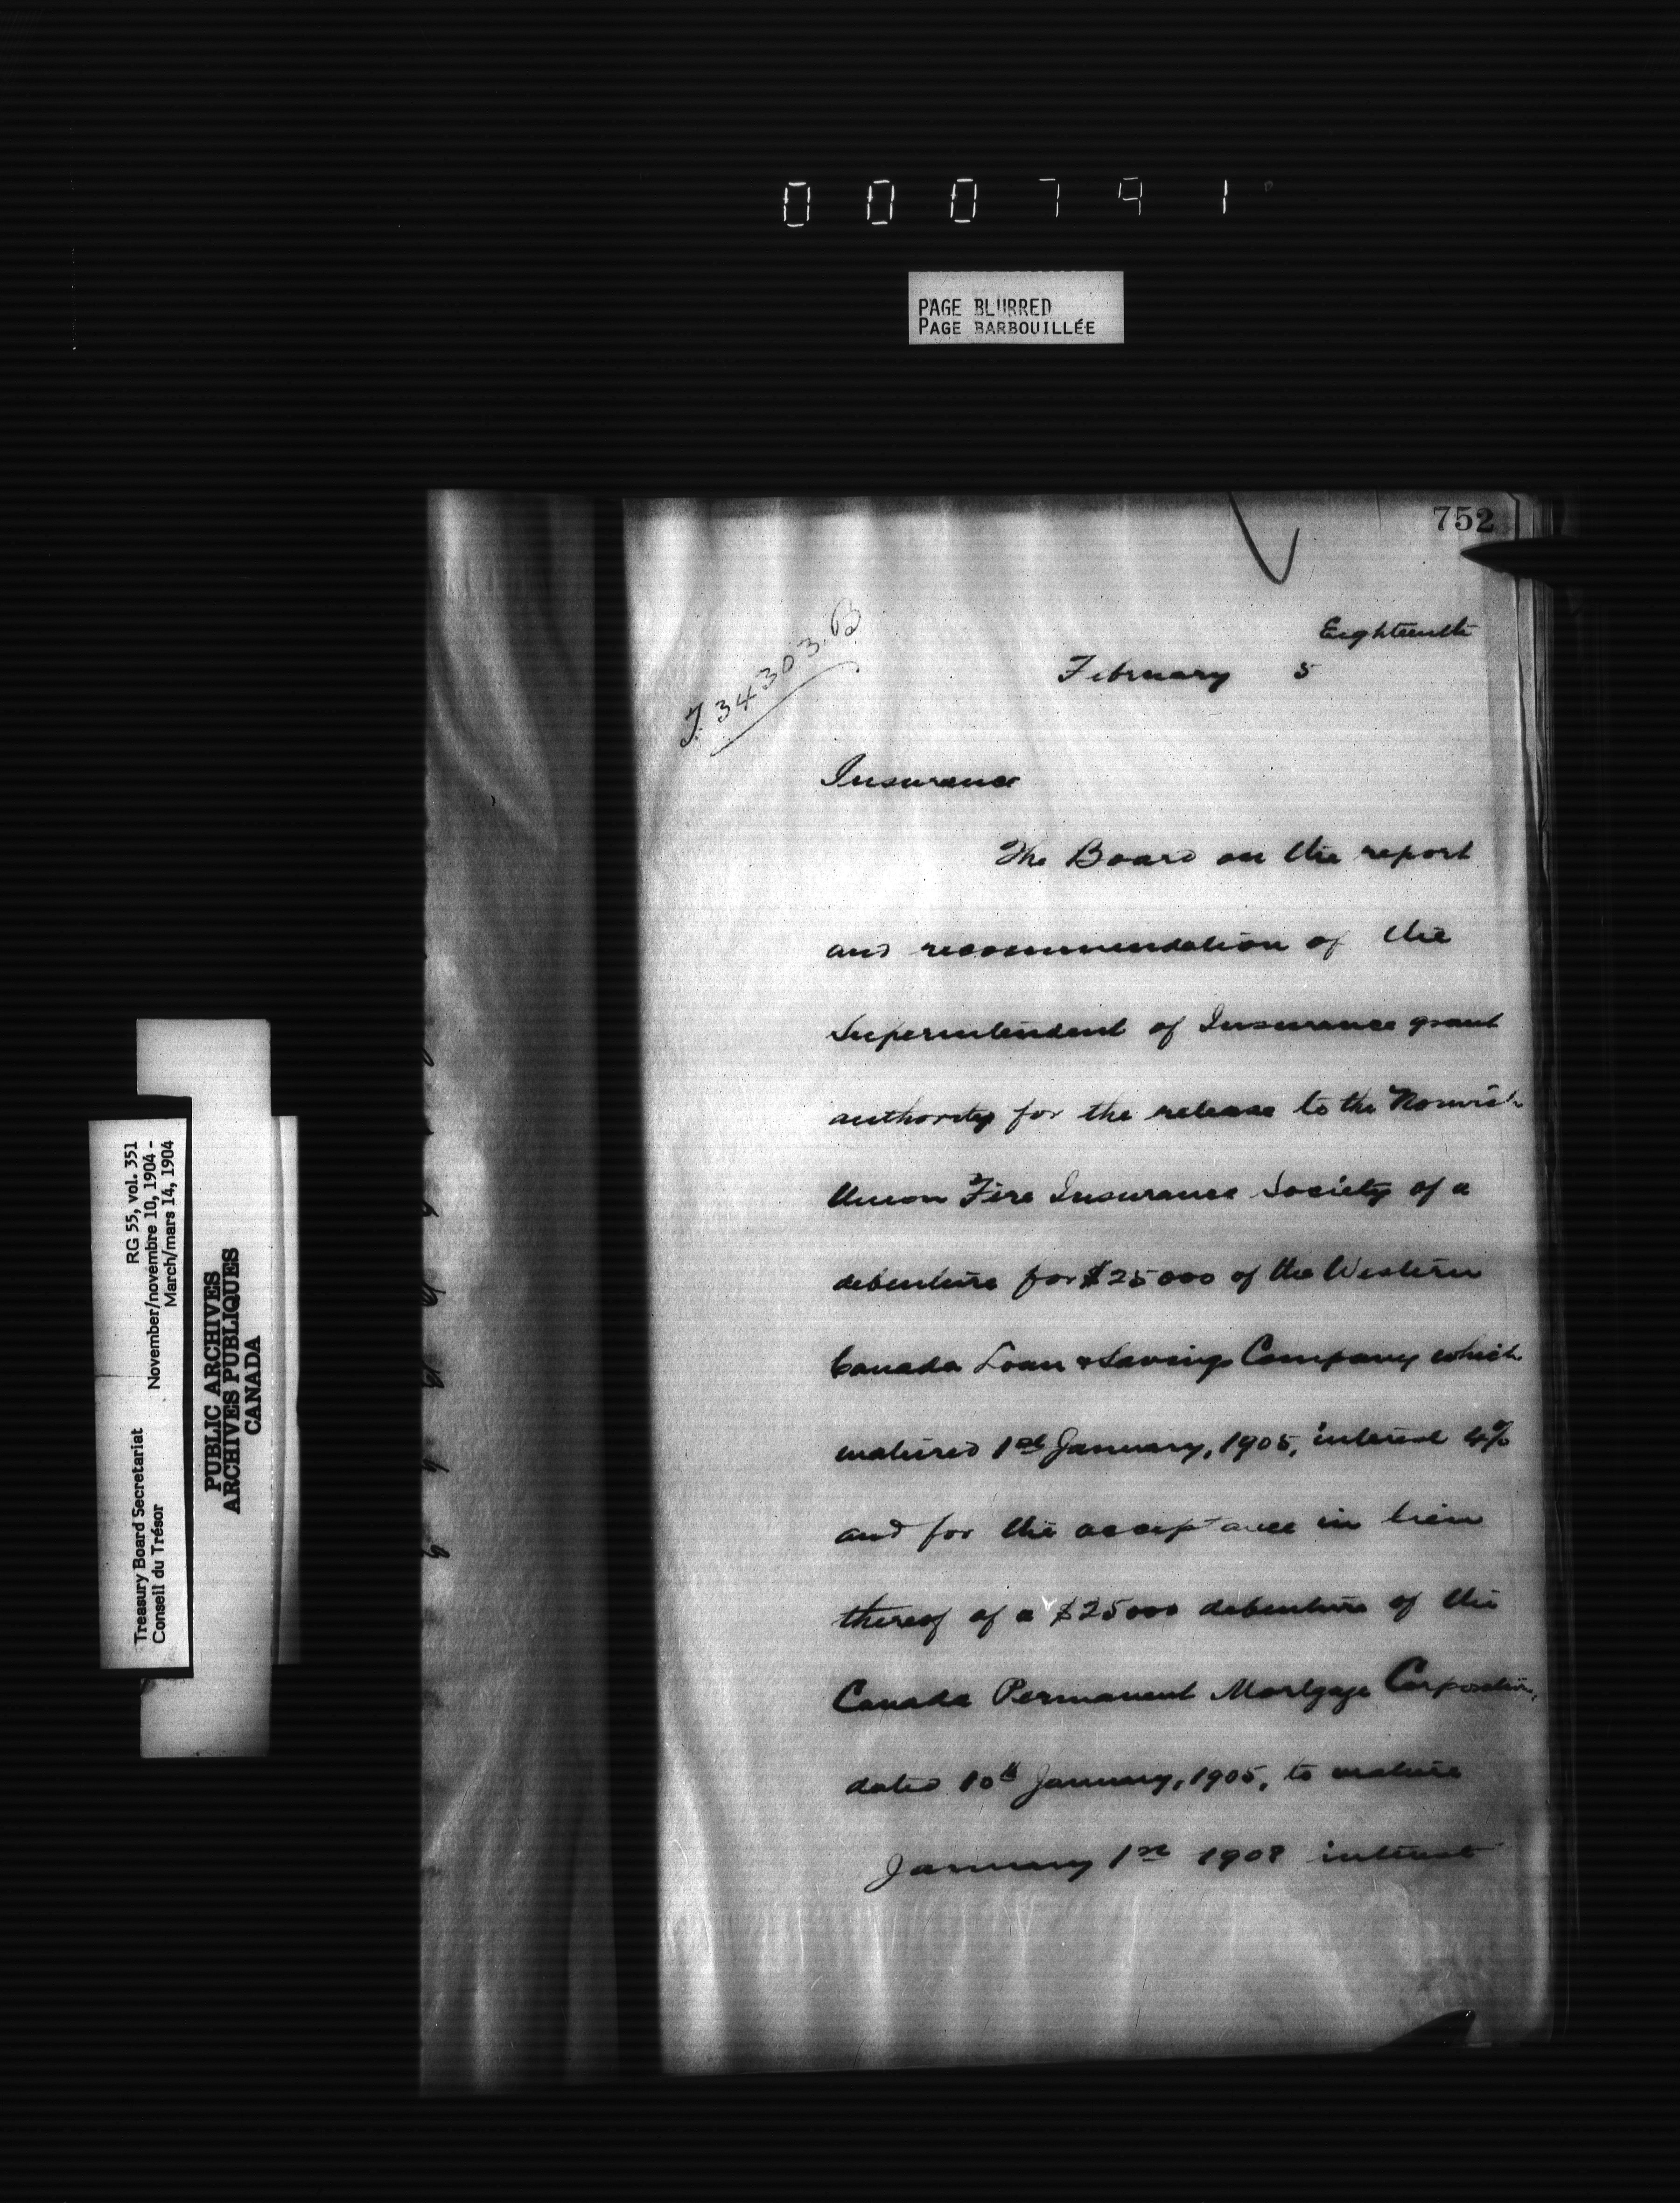 000791
PAGE BLURRED
PAGE BARBOUILLÉE
752
J. 34303.B
Eighteenth
February 5
Insurance
The Board on the report
and recommendation of the
Superintendent of Insurance grant
authority for the release to the Norwich
Union Fire Insurance Society of a
debenture for $25000 of the Western
Canada Loan & Savings Company which
matured 1st January, 1905, interest 4%
and for the acceptance in lieu
thereof of a $25000 debenture of the
Canada Permanent Mortgage Corporation,
dated 10th January, 1905, to mature
January 1st 1908 interest
Treasury Board Secretariat RG 55, vol. 351
Conseil du Trésor November/novembre 10, 1904 -
March/mars 14, 1904
PUBLIC ARCHIVES
ARCHIVES PUBLIQUES
CANADA